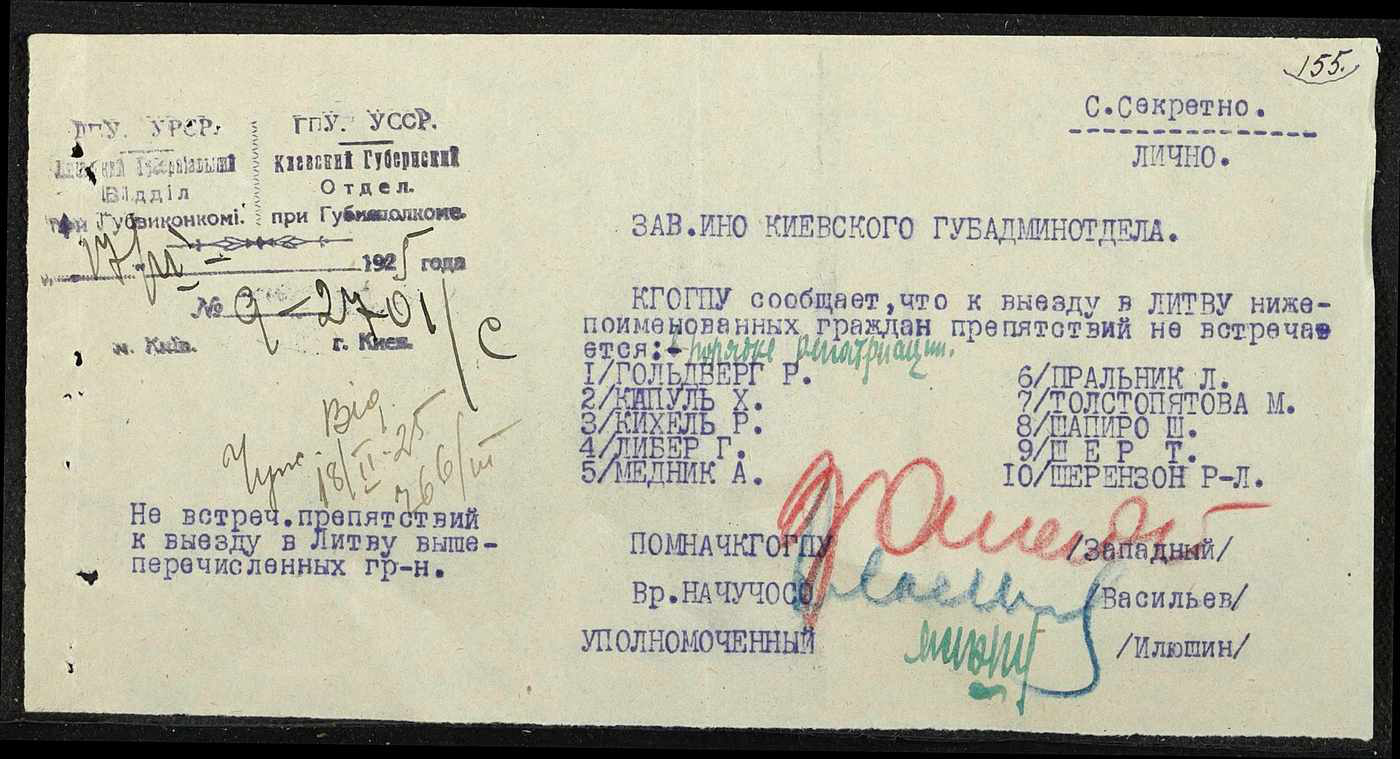 155.
С.Секретно.
ЛИЧНО.
ГПУ. УСРР.
Губерніяльний
Відділ
при Губвиконкомі.
ГПУ. УССР.
Киевский Губернский
Отдел.
при Губисполкоме.
17/III 1925 года
№ 9-2701/С
м. Київ. г. Киев.
ЗАВ.ИНО КИЕВСКОГО ГУБАДМИНОТДЕЛА.
КГОГПУ сообщает,что к выезду в ЛИТВУ ниже-
поименованных граждан препятствий не встреча
ется:- порядке репатриации.
1/ГОЛЬДБЕРГ Р.
2/КАПУЛЬ Х.
3/КИХЕЛЬ Р.
4/ЛИБЕР Г.
5/МЕДНИК А.
6/ПРАЛЬНИК Л.
7/ТОЛСТОПЯТОВА М.
8/ШАПИРО Ш.
9/Ш Е Р Т.
10/ШЕРЕНЗОН Р-Л.
Від
18/III-25
766/III
Не встреч.препятствий
к выезду в Литву выше-
перечисленных гр-н.
ПОМНАЧКГОГПУ /Западный/
Вр.НАЧУЧОСО /Васильев/
УПОЛНОМОЧЕННЫЙ /Илюшин/